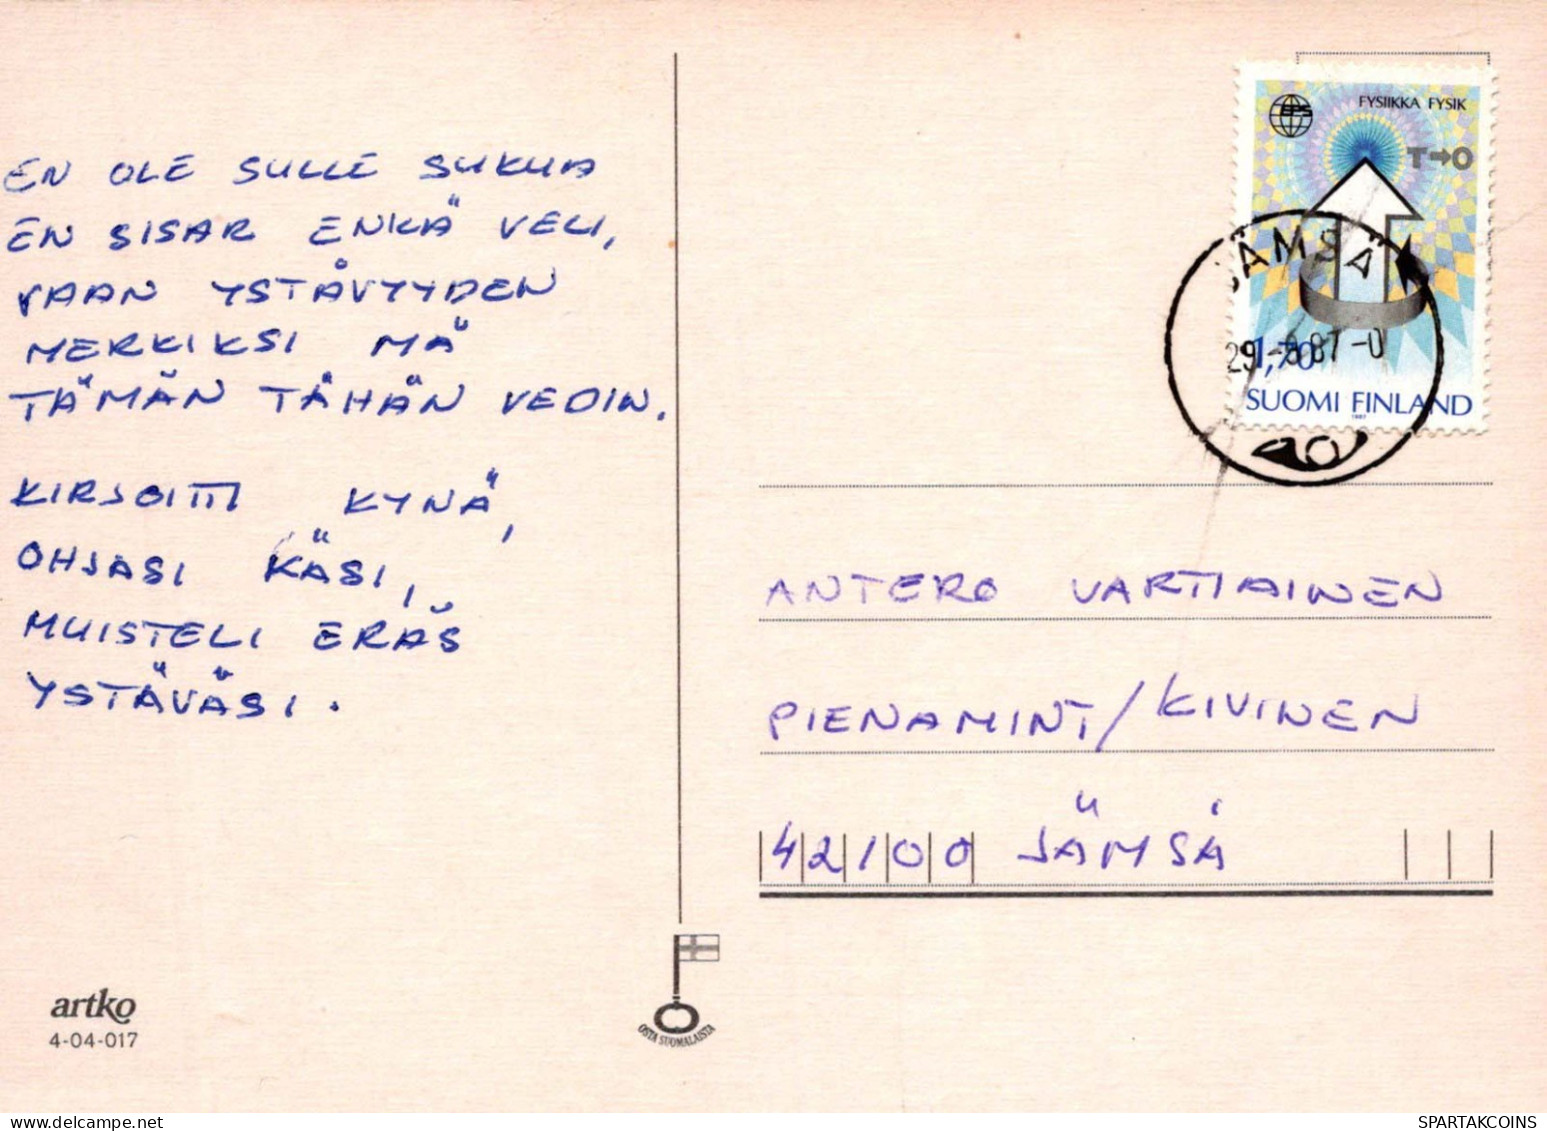 EN OLE SULLE SUKUA
EN SISAR ENKÄ VELI,
VAAN YSTÅVYYDEN
MERKIKSI MÄ
TÄMÄN TÄHÄN VEDIN.
KIRJOITTI KYNÄ,
OHJASI KÄSI,
MUISTELI ERÄS
YSTÄVÄSI.
artko
4-04-017
OSTA SUOMALAISTA
FYSIIKKA FYSIK
T→0
JÄMSÄ
1,70
SUOMI FINLAND
1987
ANTERO VARTIAINEN
PIENAMINT/KIVINEN
42100 JÄMSÄ
delcampe.net
SPARTAKCOINS